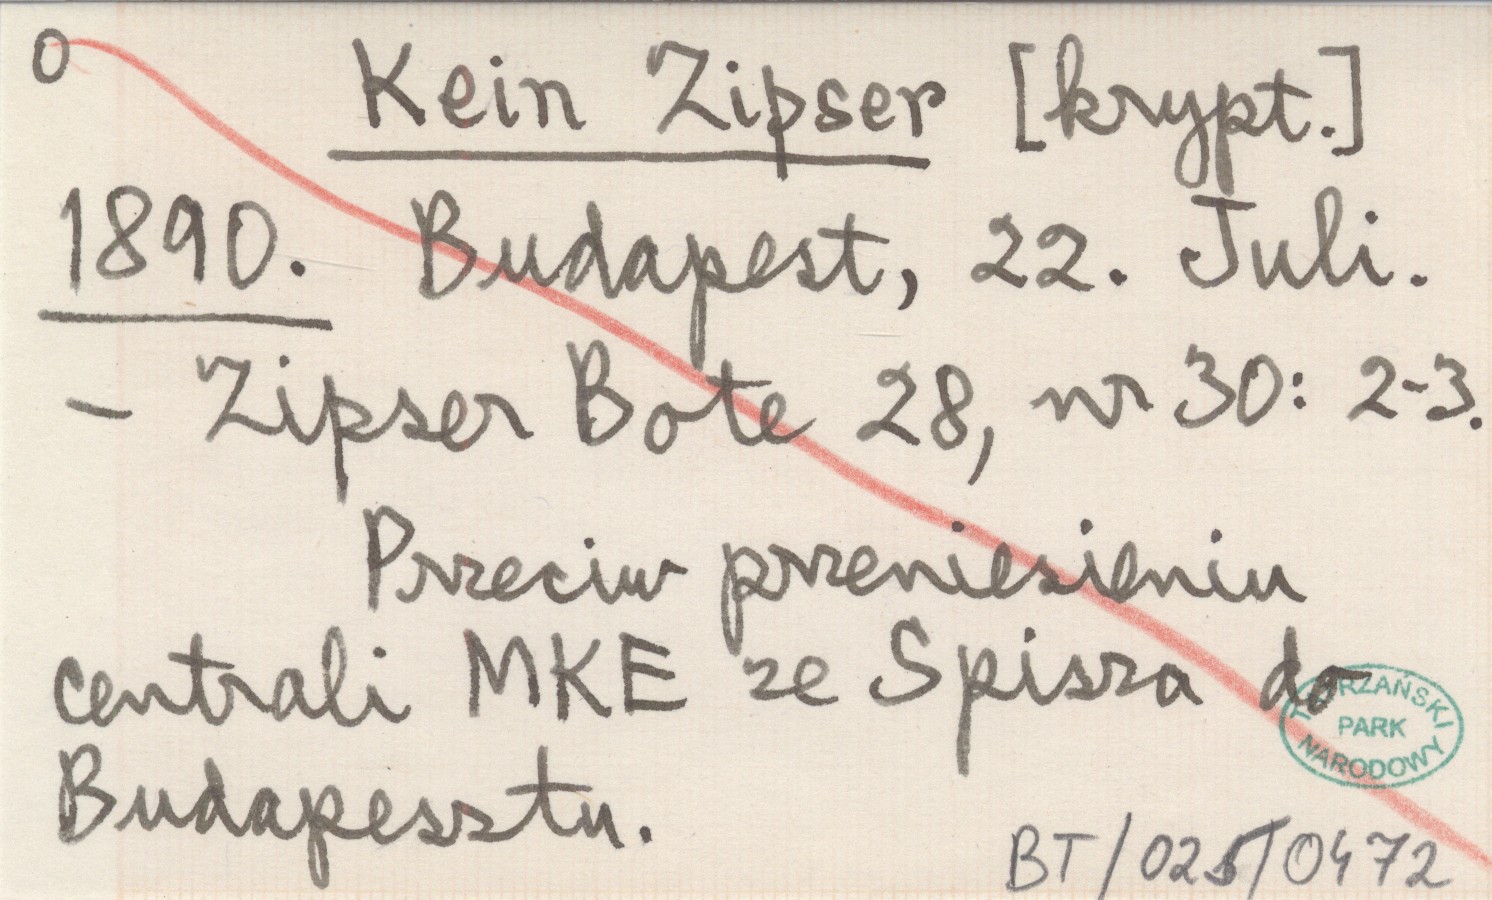 0 Kein Zipser [krypt.]
1890. Budapest, 22. Juli.
- Zipser Bote 28, nr 30: 2-3.
Przeciw przeniesieniu
centrali MKE ze Spisza do
Budapesztu.
TATRZAŃSKI
PARK
NARODOWY
BT/025/0472